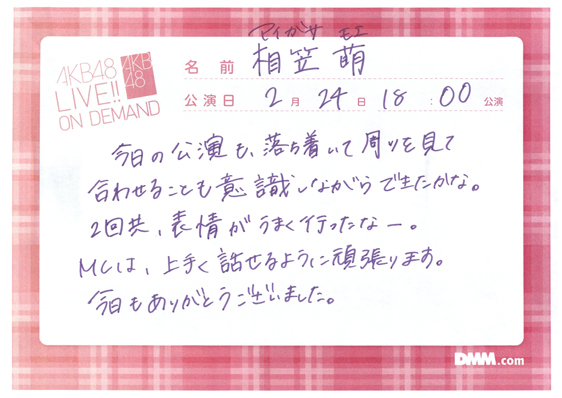 AKB48
LIVE!!
ON DEMAND
AKB
48
アイガサ モエ
名前 相笠 萌
公演日 2月 24日 18:00公演
今日の公演も、落ち着いて周りを見て
合わせることも意識しながらできたかな。
2回共、表情がうまく行ったなー。
MCは、上手く話せるように頑張ります。
今日もありがとうございました。
DMM.com